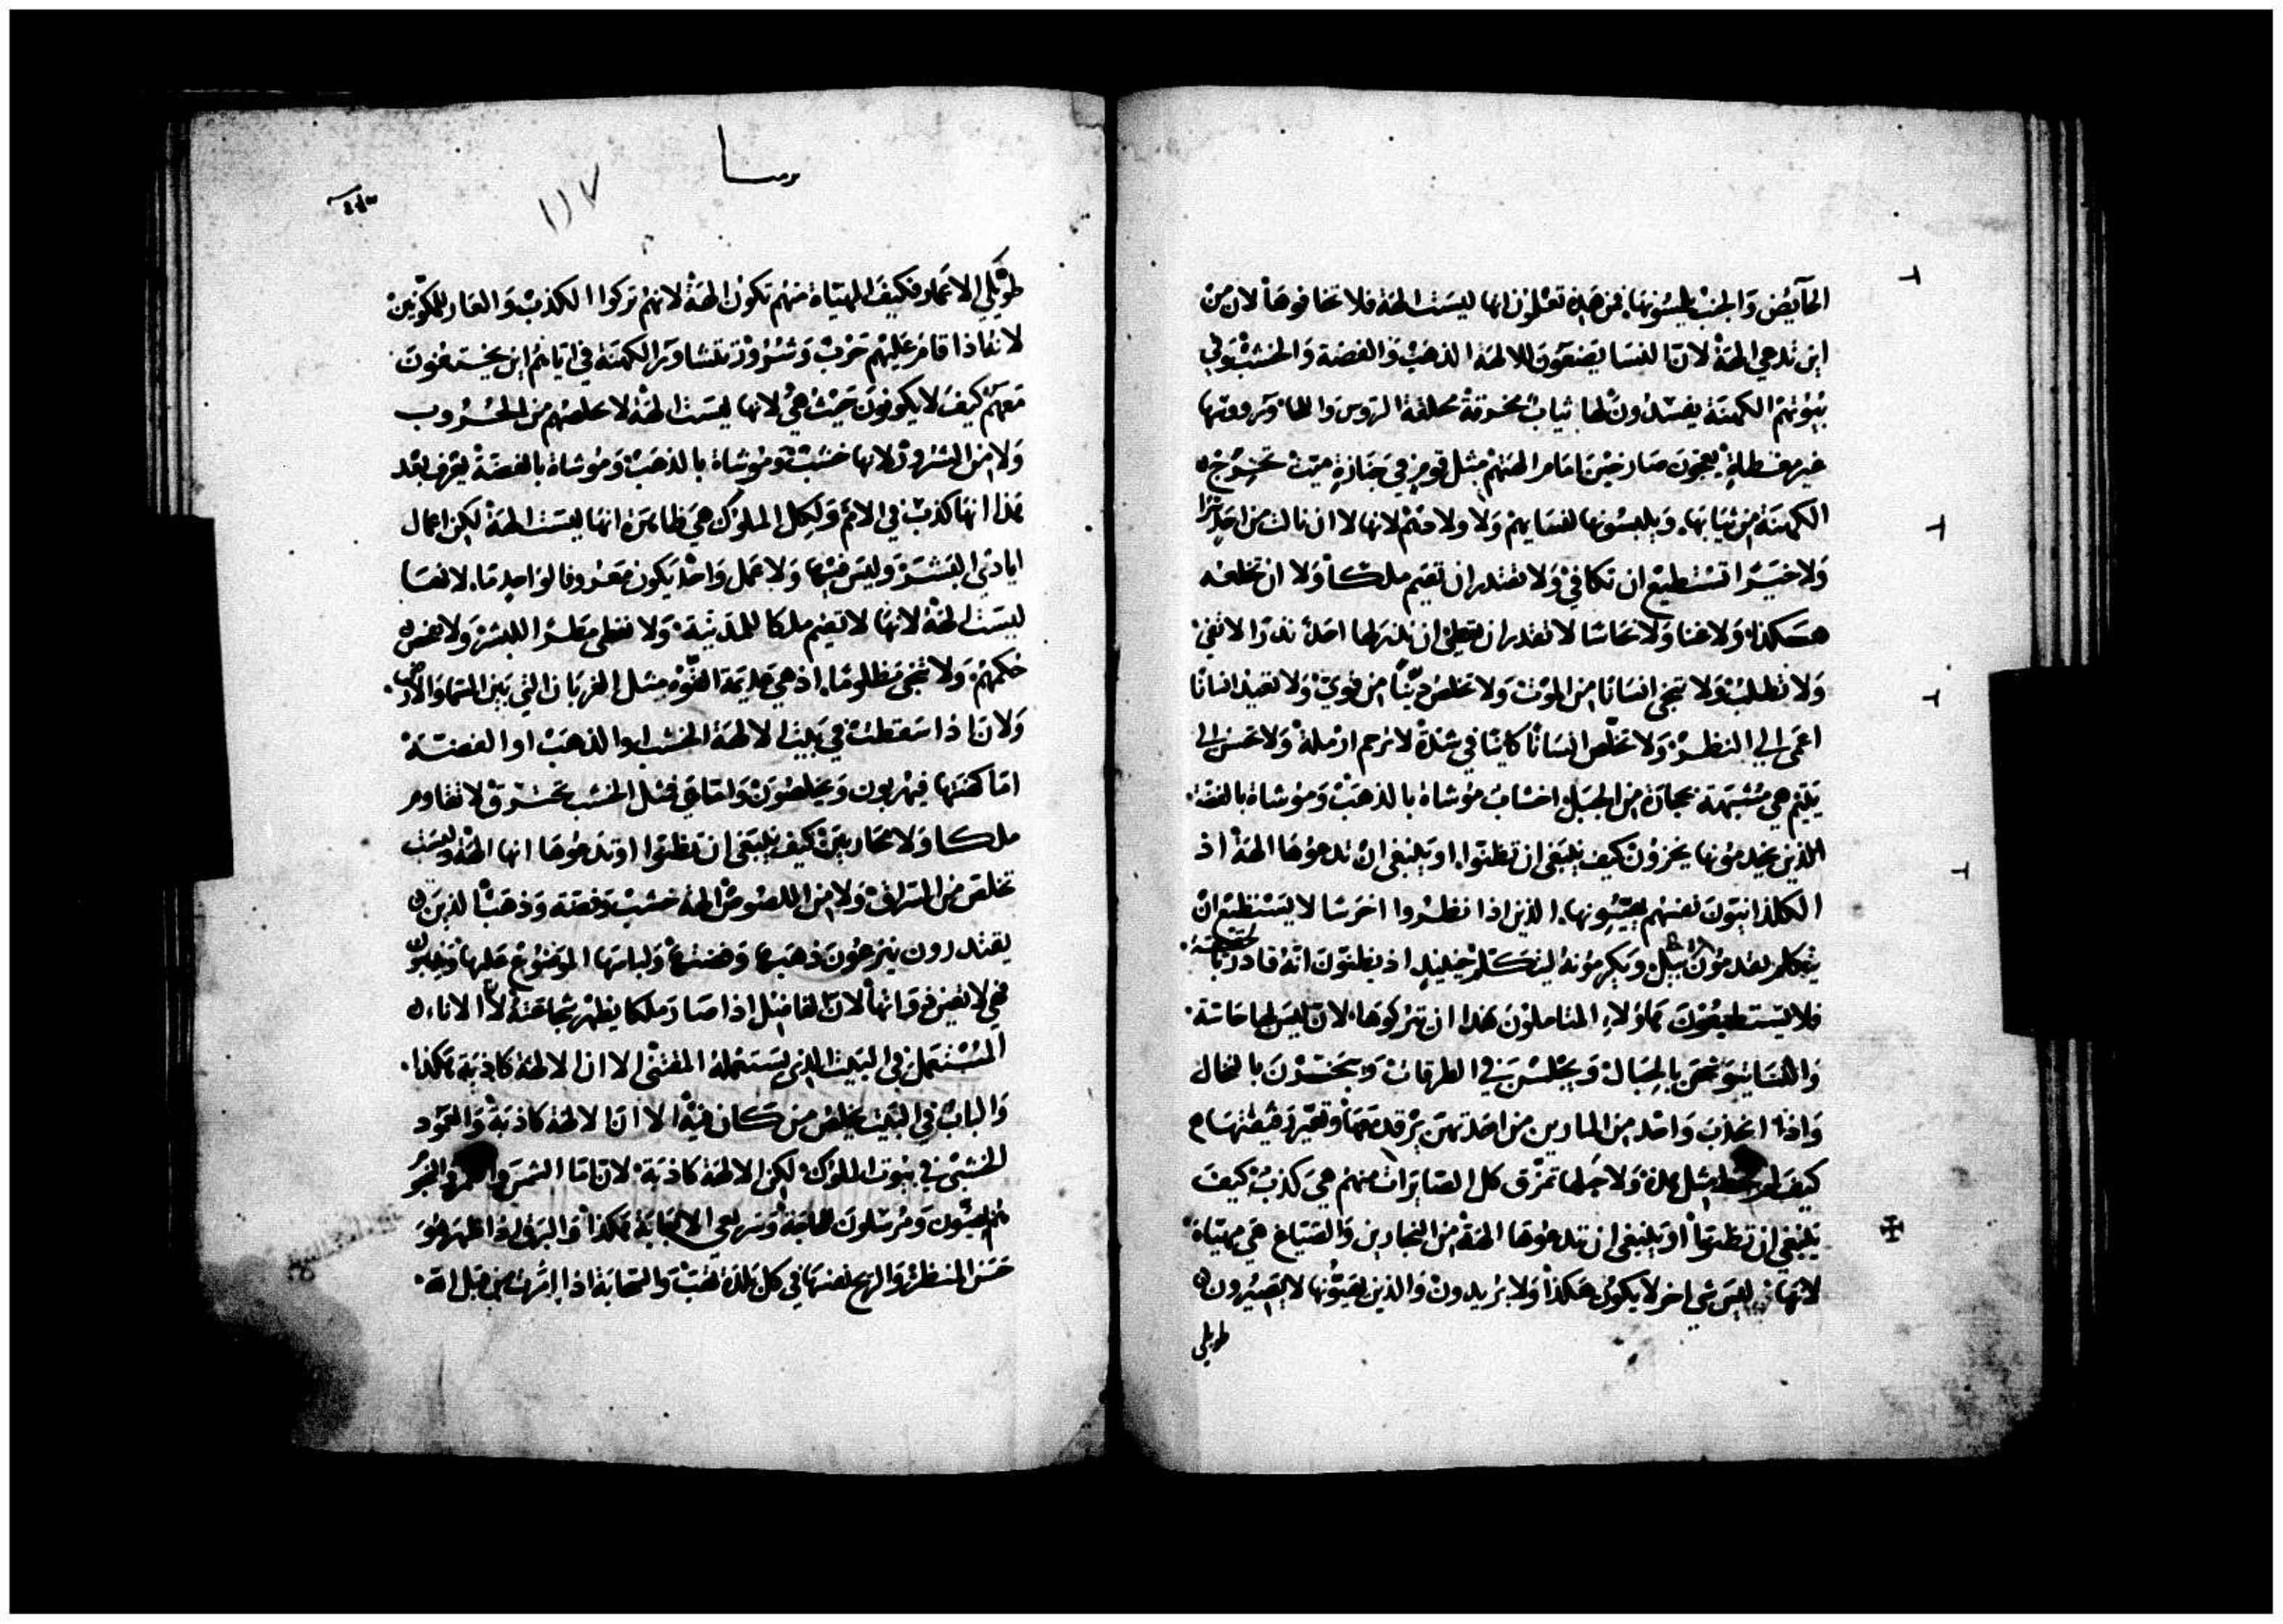 الحآيض والجنب يلمسونها. فمن هذه تعلمون انها ليست الهة فلا تخافوها لان من
اين تدعي الهة لان النسا يضعون للالهة الذهب والفضة والخشب وفي
بيوتهم الكهنة يفسدون لها ثياب مخروقة محلقة الروس واللحا ورووسها
غير مغطاة يعجون صارخين امام الهتهم مثل قوم في جنازة ميت تخرج
الكهنة من ثيابها. ويلبسونها لنسايهم ولاولادهم لانها لا ان نالت من احد شرا
ولا خيرا تستطيع ان تكافي ولا تقتدر ان تقيم ملكا ولا ان تخلعه
هكذا. ولا غنا ولا نحاسا لا تقدر ان تعطي ان نذر لها احد نذرا لا تفي
ولا تطلب ولا تنجي انسانا من الموت ولا تخلص من قوي ولا تعيد انسانا
اعمى الي النظر. ولا تخلص انسانا كاينا في شدة لا ترحم ارملة ولا تحسن الي
يتيم هي مشبهة بحجارة من الجبل اخشاب موشاة بالذهب وموشاة بالفضة.
الذين يخدمونها يخزون كيف ينبغي ان تظنوا. او ينبغي ان تدعوها الهة اذ
الكلدانيون نفسهم يعيبونها. الذين اذا نظروا اخرسا لا يستطيع ان
يتكلم يقدمون بيل ويكرمونه ليتكلم حينيذ اذ يظنون انه قادر
فلا يستطيعون هاولاء المتاملون هذا ان يتركوها. لان ليس لها حاسة.
والنسا يتوشحن بالحبال ويجلسن في الطرقات ويبخرن بالنخال
واذا انجذب واحدة من المارين من احد تهن يرقد معها وتعير رفيقتها
كيف لم مثل هذه ولا حبلها تمزق كل الصايرات منهم هي كذب كيف
ينبغي ان تظنوا او ينبغي ان تدعوها الهة من النجارين والصياغ هي مهياة
لانها ليس شي اخر لا يكون هكذا ولا يريدون والذين يعيبونها لا يصيرون
طويلي
١١٧
طويلي الاعمار فكيف المهياة منهم تكون الهة لانهم تركوا الكذب والعار للمكونين
لانه اذا قام عليهم حرب وشرور تتشاور الكهنة في ايهم اين يجتمعون
معهم كيف لا يكونون حيث هي لانها ليست الهة لا تخلصهم من الحروب
ولا من الشرور لانها خشب وموشاة بالذهب وموشاة بالفضة يعرف بعد
هذا انها كذب في الامم ولكل الملوك هي ظاهرة انها ليست الهة لكن اعمال
ايادي البشر وليس فيها ولا عمل واحد يكون معروفا لواحد ما. لانها
ليست الهة لانها لا تقيم ملكا للمدينة. ولا تعطي مطرا للبشر ولا تفحص
حكمهم ولا تنجي مظلوما. اذ هي عديمة القوة مثل الغربان التي بين السما والارض.
ولان اذا سقطت في بيت الالهة الخشب او الذهب او الفضة
اما كهنتها فيهربون ويخلصون واما هي فمثل الخشب تحترق لا تقاوم
ملكا ولا محاربين كيف ينبغي ان تظنوا او تدعوها انها الهة وليست
تخلص من السراق ولا من اللصوص الهة خشب وفضة وذهب الذين
يقتدرون ينزعون ذهبها وفضتها ولباسها الموضوع عليها
فهي لا تعين ذواتها لان افضل اذا صار ملكا يظهر شجاعته او الاناء
المستعمل في البيت الذي يستعمله المقتني الا ان الالهة كاذبة هكذا.
والباب في البيت يخلص من كان فيه الا ان الالهة كاذبة والعمود
الخشبي في بيوت الملوك لكن الالهة كاذبة. لان اما الشمس والقمر والنجوم
فهم مضيون ومرسلون للحاجة وسريعي الاجابة هكذا والبرق اذا ظهر هو
حسن المنظر والريح نفسها في كل بلدة تهب والسحابة اذا امرت من قبل الله.